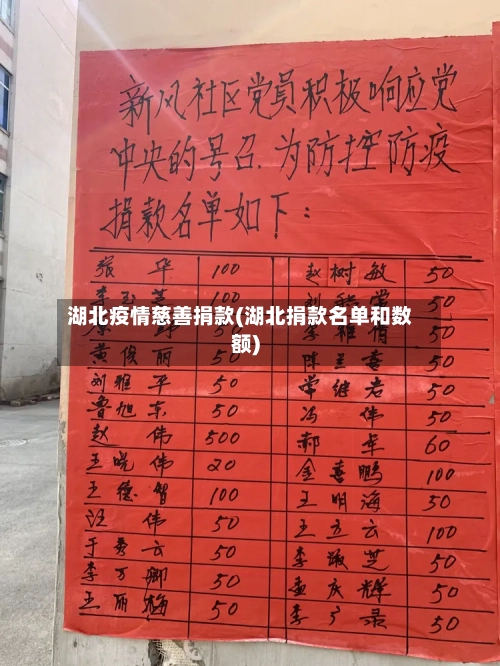 新风社区党员积极响应党
中央的号召.为防控防疫
捐款名单如下：
张 华 100 赵树敏 50
100 50
湖北疫情慈善捐款(湖北捐款名单和数
额)
黄俊丽 50 陈兰香 50
刘雅平 50 常继君 50
鲁旭东 50 冯 伟 50
赵 伟 500 郝 军 60
王晓伟 20 金喜鹏 100
王德智 100 王明海 50
汪 伟 50 王立云 100
于秀云 50 李淑芝 50
李万卿 50 孟庆辉 50
王丽梅 50 李广录 50